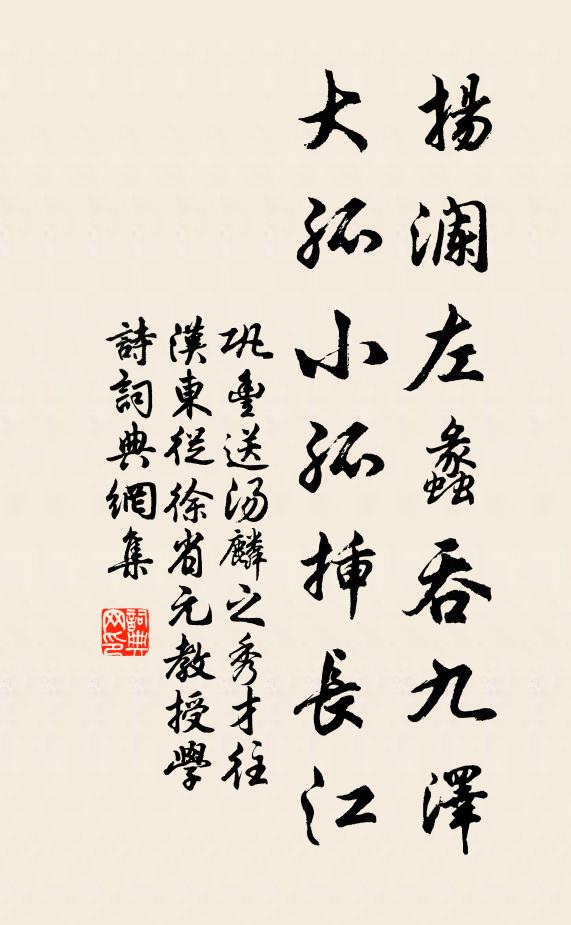 揚瀾左蠡吞九澤
大孤小孤挿長江
巩豊送汤麟之秀才往
漢東從徐省元教授學
詩詞典網集
詞典网印